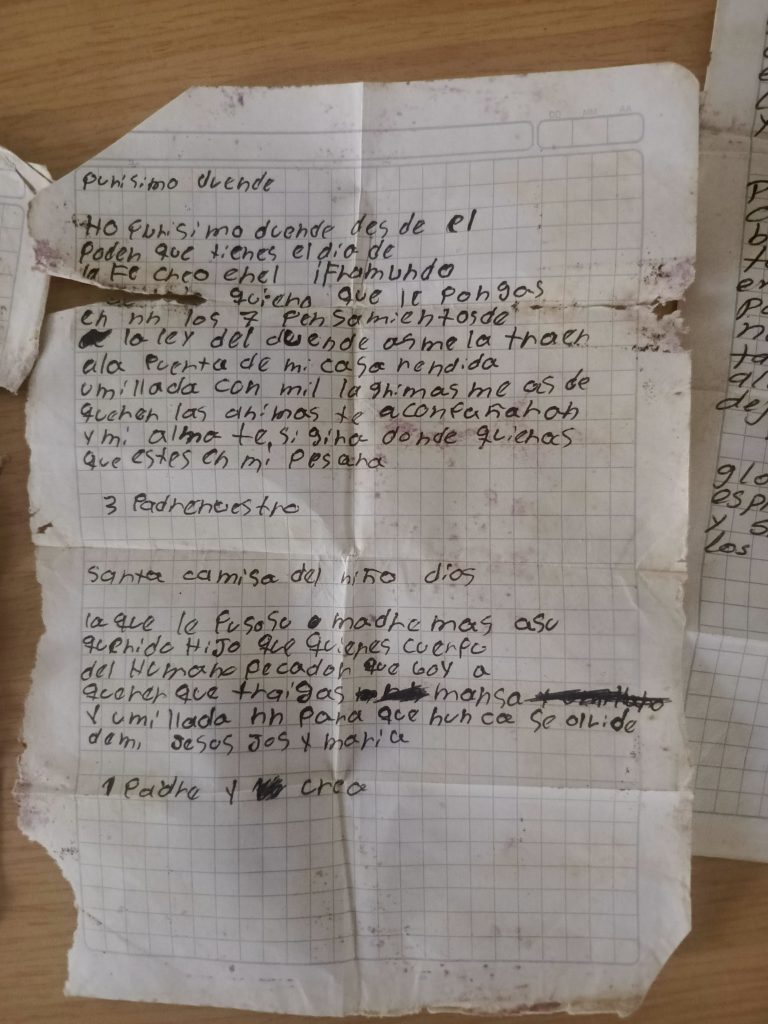 purisimo duende
HO purisimo duende des de el
Poder que tienes el dia de
la Fe creo enel iframundo
quiero que le pongas
en nn los 7 pensamientos de
la ley del duende asme la traer
ala puerta de mi casa rendida
umillada con mil lagrimas me as de
querer las animas te acompañaran
y mi alma te sigira donde quieras
que estes en mi pesara
3 Padrenuestro
Santa camisa del niño dios
la que le puso su madre mas asu
querido Hijo que quieres cuerpo
del Humano pecador que boy a
querer que traigas mansa
y umillada nn para que nunca se olvide
demi Jesus Jos y maria
1 Padre y creo
AA
MM
DD
glo
espi
los